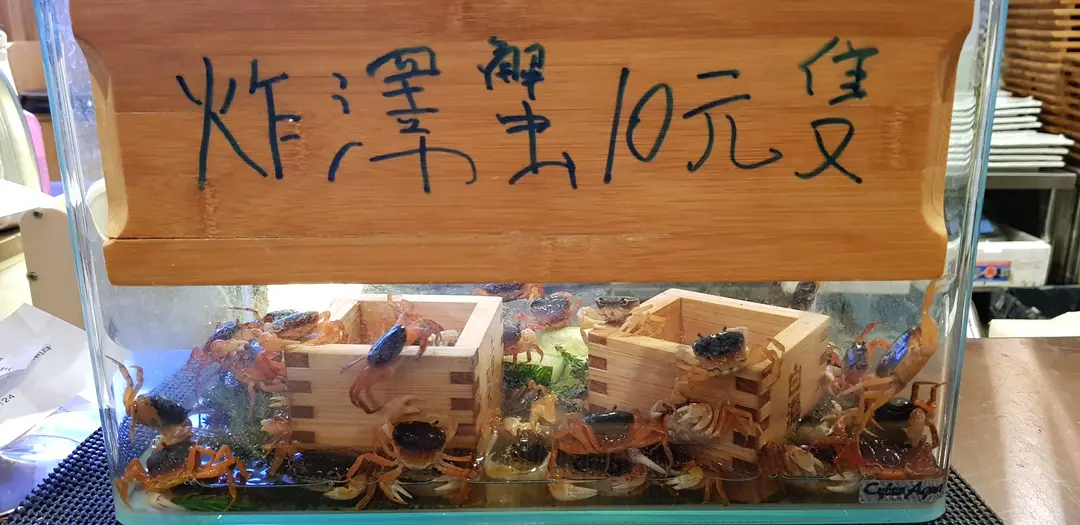 炸澤蟹10元隻